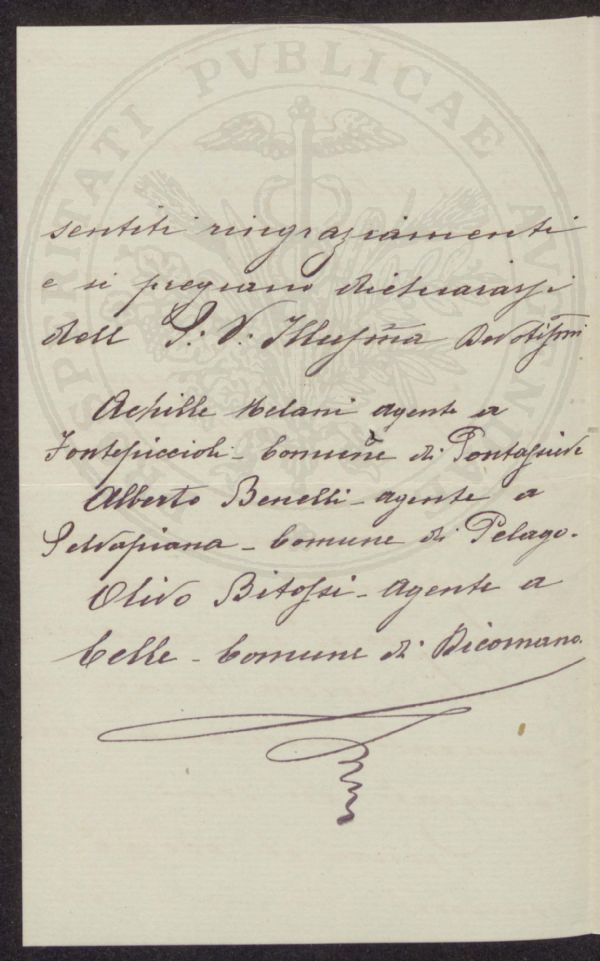 PROSPERITATI PVBLICAE AVGENDAE
sentiti ringraziamenti
e si pregiano dichiararsi
dell S. V. Illusm̃a Devotissmi
Achille Melani agente a
Fontepiccioli - Comune di Pontassieve
Alberto Benelli - agente a
Selvapiana - Comune di Pelago.
Olivo Bitossi - agente a
Celle - Comune di Dicomano.